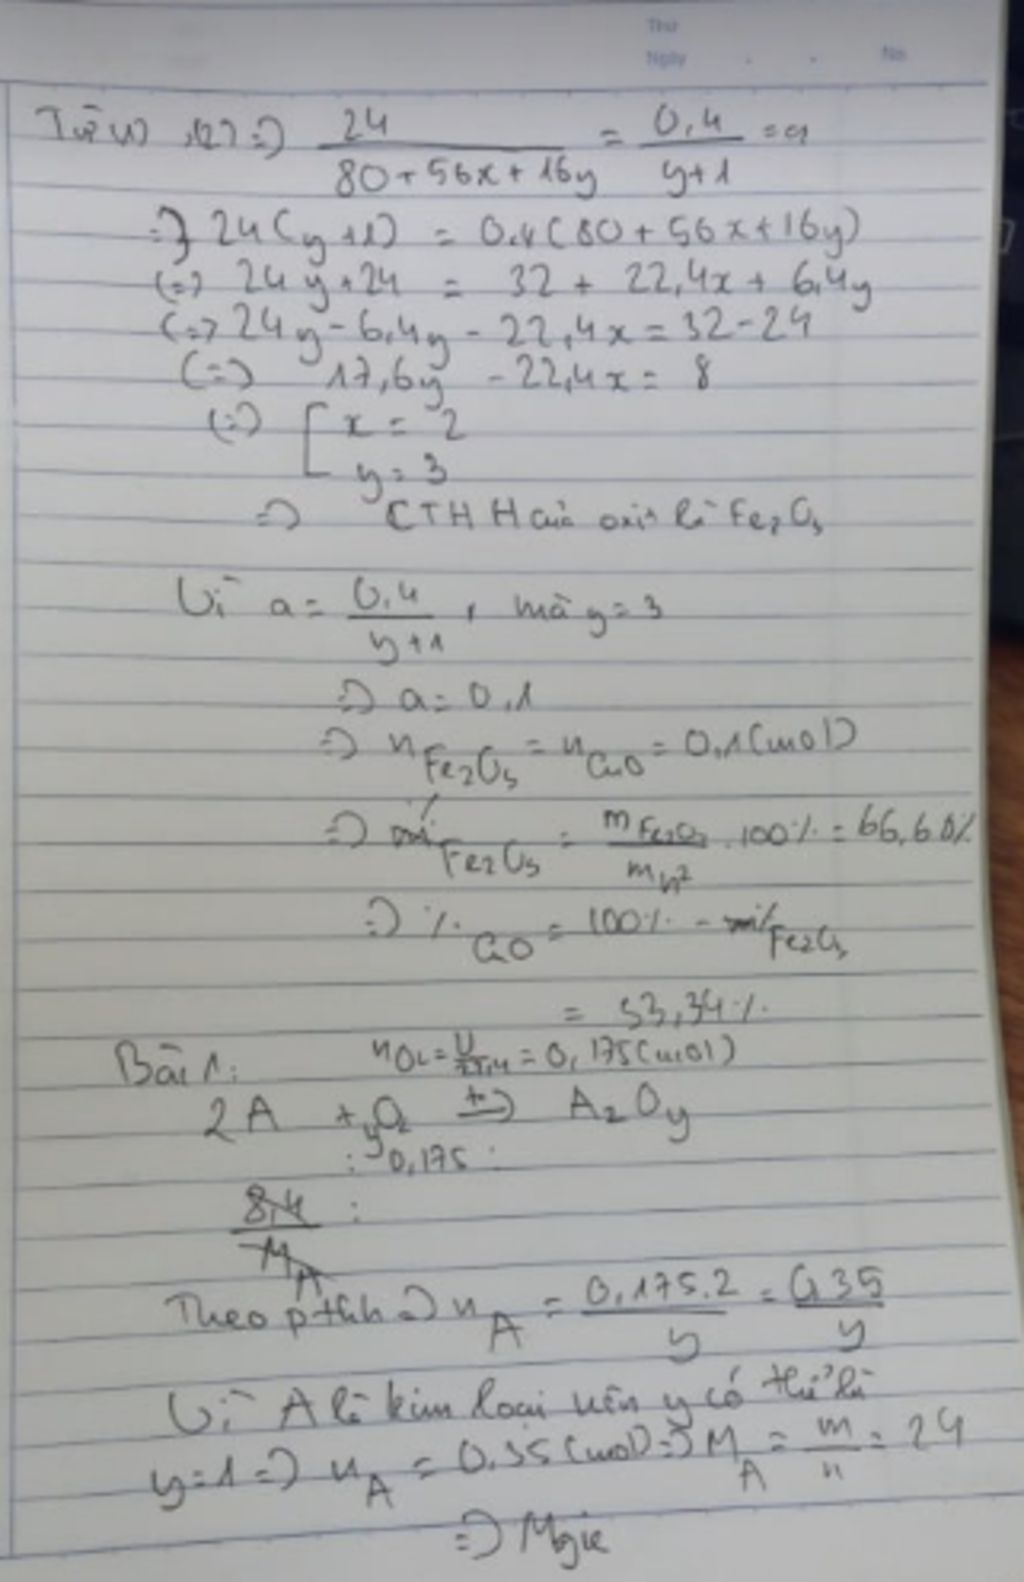 Thứ
Ngày . . No
Từ (1), (2) => 24 / (80+56x+16y) = 0,4 / (y+1) = a
=> 24(y+1) = 0,4(80+56x+16y)
(=) 24y+24 = 32 + 22,4x + 6,4y
(=> 24y-6,4y - 22,4x = 32-24
(=) 17,6y - 22,4x = 8
(=) [ x = 2
y = 3
=> CTHH của oxit là Fe2O3
Vì a = 0,4 / (y+1) , mà y = 3
=> a = 0,1
=> nFe2O3 = nCuO = 0,1(mol)
=> %Fe2O3 = mFe2O3 / mh² . 100% = 66,60%
=> %CuO = 100% - %Fe2O3
= 53,34%
Bài 1: nO2 = V/22,4 = 0,175(mol)
2A + yO2 to=> A2Oy
: 0,175 :
8,4 / MA :
Theo pthh => nA = 0,175.2 / y = 0,35 / y
Vì A là kim loại nên y có thể là
y=1 => nA = 0,35(mol) => MA = m/n = 24
=> Mgie